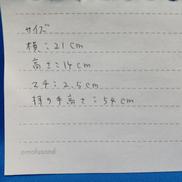 サイズ
横:21cm
高さ:14cm
マチ:2.5cm
持ち手高さ:54cm
mofusand